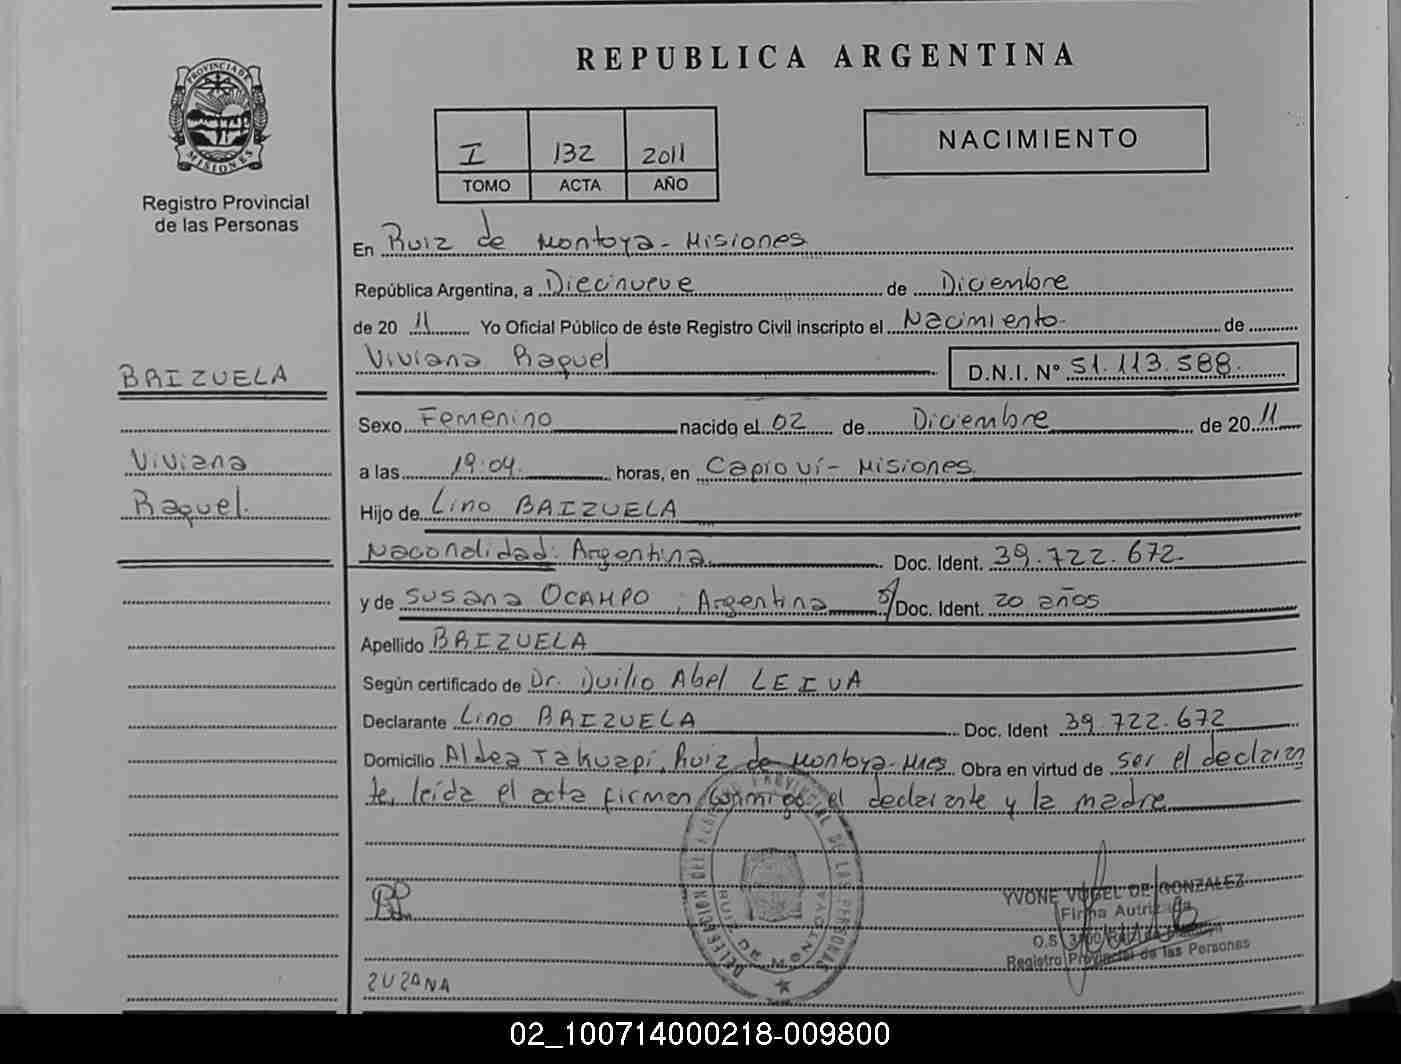 REPUBLICA ARGENTINA
PROVINCIA DE
MISIONES
Registro Provincial
de las Personas
I 132 2011
TOMO ACTA AÑO
NACIMIENTO
En Ruiz de Montoya - Misiones
República Argentina, a Diecinueve de Diciembre
de 20 11 Yo Oficial Público de éste Registro Civil inscripto el Nacimiento de
Viviana Raquel D.N.I. N° 51.113.588.
BRIZUELA
Viviana
Raquel.
Sexo Femenino nacido el 02 de Diciembre de 20 11
a las 19:04. horas, en Capioví - Misiones.
Hijo de Lino BRIZUELA
Nacondidad: Argentina. Doc. Ident. 39.722.672.
y de Susana OCAMPO, Argentina s/ Doc. Ident. 20 años
Apellido BRIZUELA
Según certificado de Dr. Duilio Abel LEIVA
Declarante Lino BRIZUELA Doc. Ident 39.722.672
Domicilio Aldea Takuapí, Ruiz de Montoya - Mnes Obra en virtud de ser el declaran
te, leída el acta firman conmigo el declarante y la madre
DELEGACION DEL REGISTRO PROVINCIAL DE LAS PERSONAS
RUIZ DE MONTOYA
YVONE VOGEL DE GONZALEZ
Firma Autrizada
O.S.
Registro Provincial de las Personas
ZUZANA
02_100714000218-009800